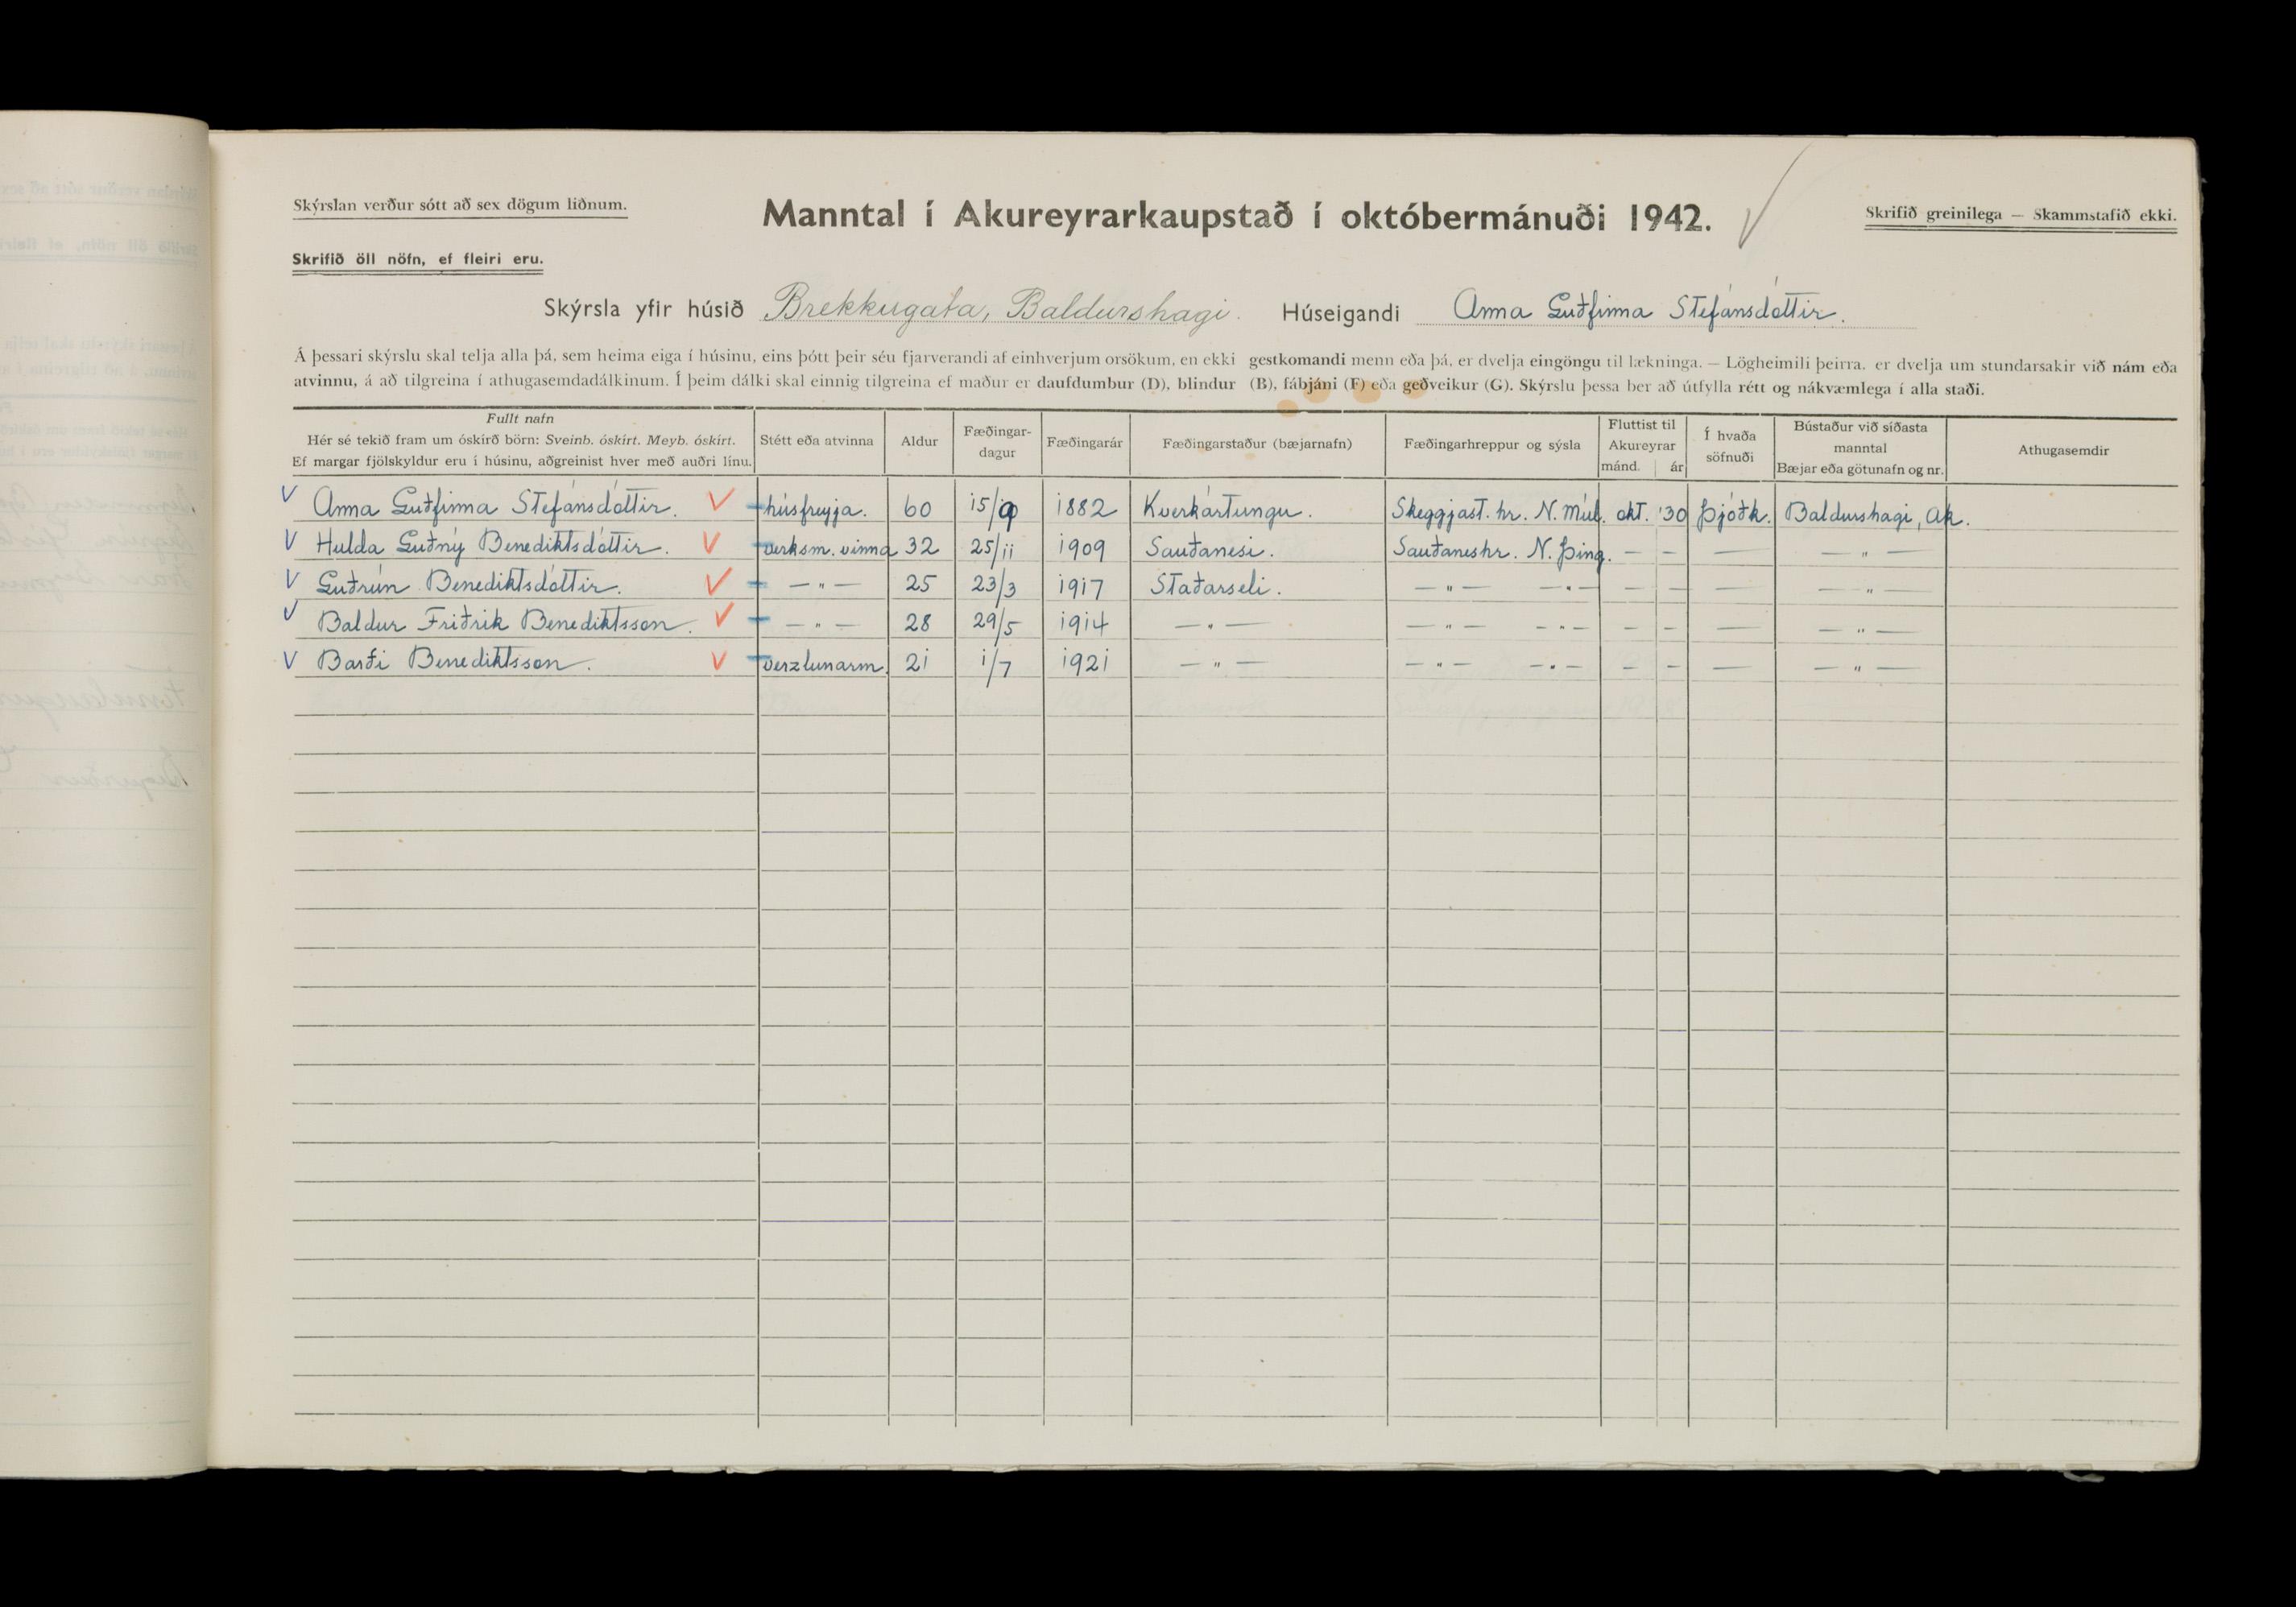 Skýrslan verður sótt að sex dögum liðnum.
Manntal í Akureyrarkaupstað í októbermánuði 1942.
Skrifið greinilega — Skammstafið ekki.
Skrifið öll nöfn, ef fleiri eru.
Skýrsla yfir húsið Brekkugata, Baldurshagi. Húseigandi Anna Guðfinna Stefánsdóttir.
Á þessari skýrslu skal telja alla þá, sem heima eiga í húsinu, eins þótt þeir séu fjarverandi af einhverjum orsökum, en ekki gestkomandi menn eða þá, er dvelja eingöngu til lækninga. — Lögheimili þeirra, er dvelja um stundarsakir við nám eða
atvinnu, á að tilgreina í athugasemdadálkinum. Í þeim dálki skal einnig tilgreina ef maður er daufdumbur (D), blindur (B), fábjáni (F) eða geðveikur (G). Skýrslu þessa ber að útfylla rétt og nákvæmlega í alla staði.
Fullt nafn
Hér sé tekið fram um óskírð börn: Sveinb. óskírt. Meyb. óskírt.
Ef margar fjölskyldur eru í húsinu, aðgreinist hver með auðri línu.
Stétt eða atvinna
Aldur
Fæðingar-
dagur
Fæðingarár
Fæðingarstaður (bæjarnafn)
Fæðingarhreppur og sýsla
Fluttist til
Akureyrar
mánd. ár
Í hvaða
söfnuði
Bústaður við síðasta
manntal
Bæjar eða götunafn og nr.
Athugasemdir
V Anna Guðfinna Stefánsdóttir. V húsfreyja. 60 15/9 1882 Kverkártungu. Skeggjast. hr. N. Múl. okt. '30 Þjóðk. Baldurshagi, Ak.
V Hulda Guðný Benediktsdóttir. V verksm. vinna 32 25/11 1909 Sauðanesi. Sauðaneshr. N. Þing. — — — — " —
V Guðrún Benediktsdóttir. V — " — 25 23/3 1917 Staðarseli. — " — — " — — — — — " —
V Baldur Friðrik Benediktsson. V — " — 28 29/5 1914 — " — — " — — " — — — — — " —
V Barði Benediktsson. V verzlunarm. 21 1/7 1921 — " — — " — — " — — — — — " —